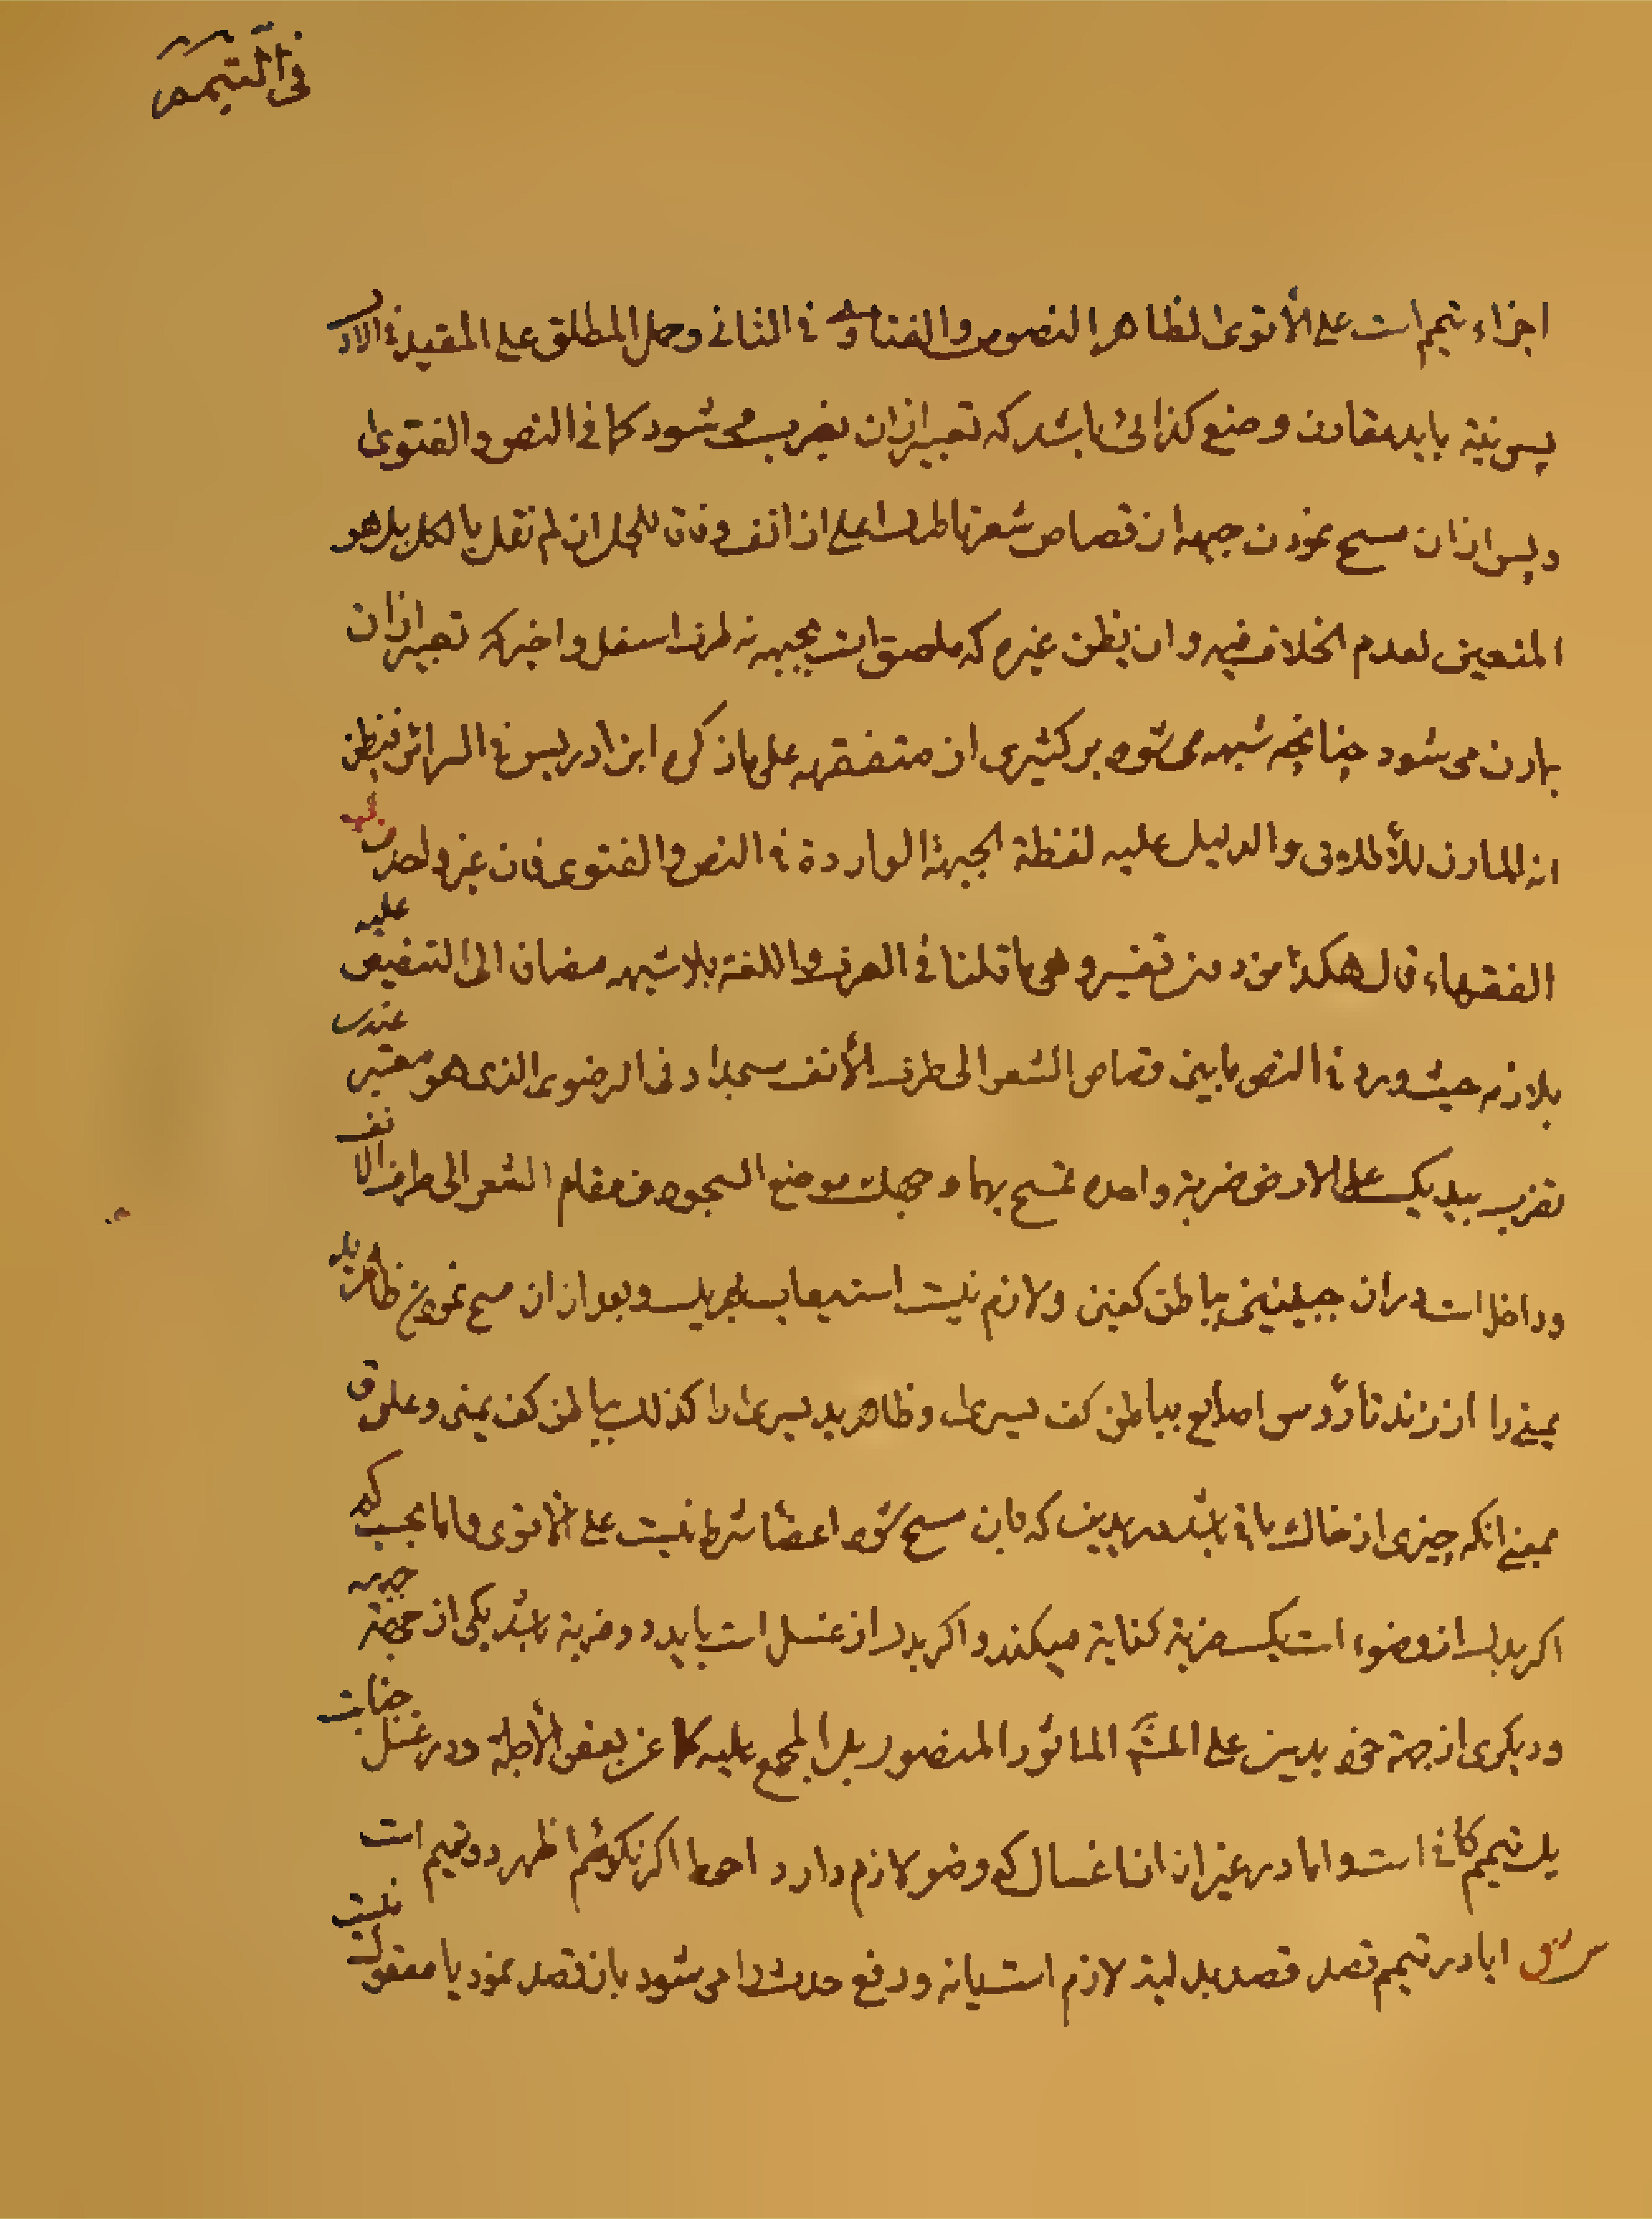 فی التیمم
اجزاء تیمم است علی الأقوی لظاهر النصوص والفتاوی فی الثانی وحمل المطلق علی المقید فی الاول
پس نیة باید مقارن وضع کذائی باشد که تعبیر ازان بضرب می شود کما فی النص والفتوی
و پس ازان مسح نمودن جبهه از قصاص شعر تا طرف اعلی از انف وفاقا للجل ان لم نقل بالکل بل هو
المتعین لعدم الخلاف فیه و ان یظن غیره که ملصق است بجبهه نه طرف اسفل و اخیر که تعبیر ازان
بمارن می شود چنانچه شبهه می شود بر کثیری از متفقهه علی ما ذکره ابن ادریس فی السرائر فیظن
انه المارن للأطلاق والدلیل علیه لفظة الجبهة الواردة فی النص والفتوی فان غیر واحد من
الفقهاء قال هکذا من دون تفسیر وهی ما قلنا فی العرف واللغة بلا شبهه مضاف الی التنصیص علیه
بلازم حیث ورد فی النص ما بین قصاص الشعر الی طرف الأنف مسجد و فی الرضوی الذی هو معتبر عندی
تضرب بیدیک علی الارض ضربة واحده تمسح بهما وجهک موضع السجود من مقام الشعر الی طرف الانف
و داخل است دران جبینین بباطن کفین و لازم نیست استیعاب بهر یک و بعد ازان مسح نمودن ظاهر ید
یمنی را از زند تا رؤس اصابع بباطن کف یسری و ظاهر ید یسری را کذلک بباطن کف یمنی و علوق
بمعنی انکه چیزی از خاک باقی باشد در یدین که بان مسح شود اعضا شرط نیست علی الأقوی و اما بحسب کم
اکر بدل از وضوء است یک ضربة کفایة میکند و اکر بدل از غسل است باید دو ضربة باشد یکی از جهة جبهه
و دیکری از جهة خود یدین علی المش الماثور المنصور بل المجمع علیه کما عن بعض الأجلة و در غسل جنابت
یک تیمم کافی است و اما در غیر ان از اغسال که وضو لازم دارد احوط اکر نکوئیم اظهر دو تیمم است
س ایا در تیمم قصد قصد بدلیة لازم است یا نه و رفع حدث را می شود بان قصد نمود یا معقول نیست